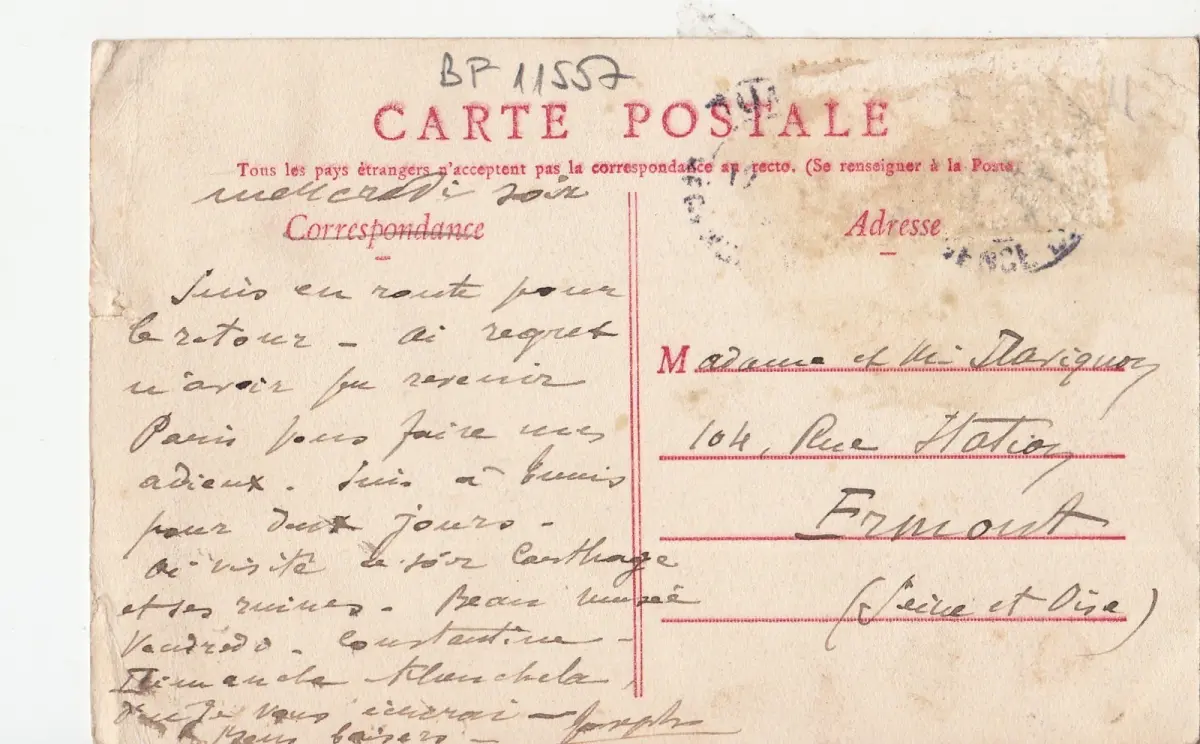 BP 11557
CARTE POSTALE
Tous les pays étrangers n'acceptent pas la correspondance au recto. (Se renseigner à la Poste)
mercredi soir
Correspondance
Suis en route pour
le retour – ai regret
n'avoir pu revenir
Paris pour faire mes
adieux. Suis à Tunis
pour deux jours –
Ai visité ce soir Carthage
et ses ruines – Beau musée
Vendredi – Constantine –
Dimanche Khenchela,
d'où je vous écrirai – Joseph
Bons baisers –
Adresse
Madame et Mr
104, Rue Station
Ermont
(Seine et Oise)